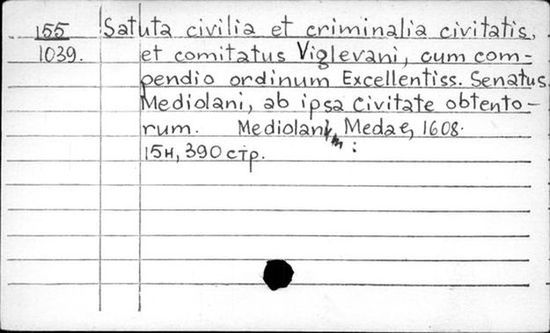 155 Satuta civilia et criminalia civitatis,
1039. et comitatus Viglevani, cum com-
pendio ordinum Excellentiss. Senatus
Mediolani, ab ipsa Civitate obtento-
rum. Mediolani, Medae, 1608.
15н, 390 стр.